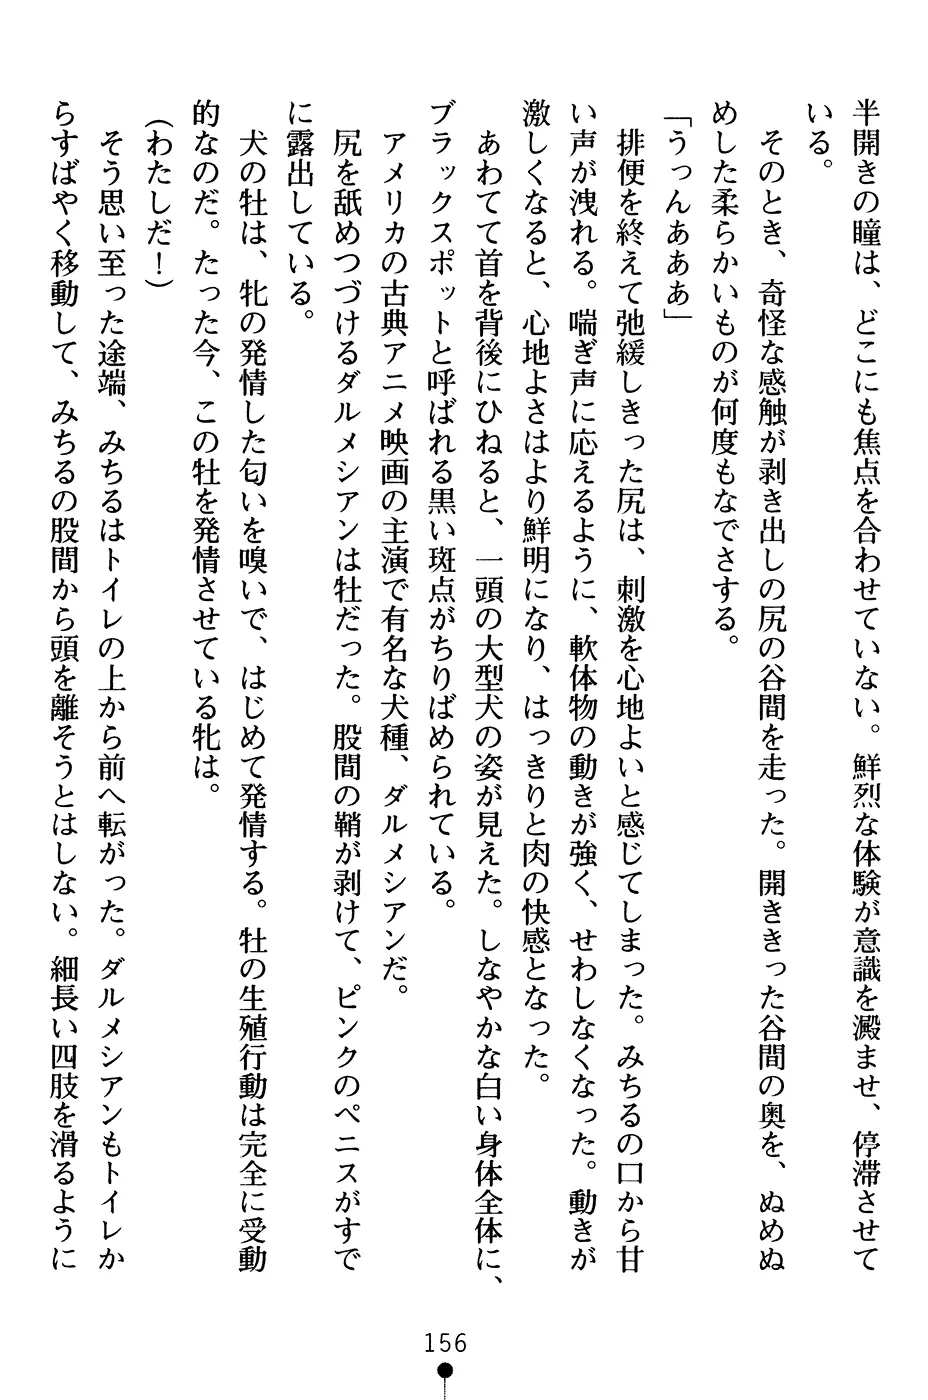 半開きの瞳は、どこにも焦点を合わせていない。鮮烈な体験が意識を澱ませ、停滞させて
いる。
そのとき、奇怪な感触が剥き出しの尻の谷間を走った。開ききった谷間の奥を、ぬめぬ
めした柔らかいものが何度もなでさする。
「うっんあああ」
排便を終えて弛緩しきった尻は、刺激を心地よいと感じてしまった。みちるの口から甘
い声が洩れる。喘ぎ声に応えるように、軟体物の動きが強く、せわしなくなった。動きが
激しくなると、心地よさはより鮮明になり、はっきりと肉の快感となった。
あわてて首を背後にひねると、一頭の大型犬の姿が見えた。しなやかな白い身体全体に、
ブラックスポットと呼ばれる黒い斑点がちりばめられている。
アメリカの古典アニメ映画の主演で有名な犬種、ダルメシアンだ。
尻を舐めつづけるダルメシアンは牡だった。股間の鞘が剥けて、ピンクのペニスがすで
に露出している。
犬の牡は、牝の発情した匂いを嗅いで、はじめて発情する。牡の生殖行動は完全に受動
的なのだ。たった今、この牡を発情させている牝は。
(わたしだ!)
そう思い至った途端、みちるはトイレの上から前へ転がった。ダルメシアンもトイレか
らすばやく移動して、みちるの股間から頭を離そうとはしない。細長い四肢を滑るように
156